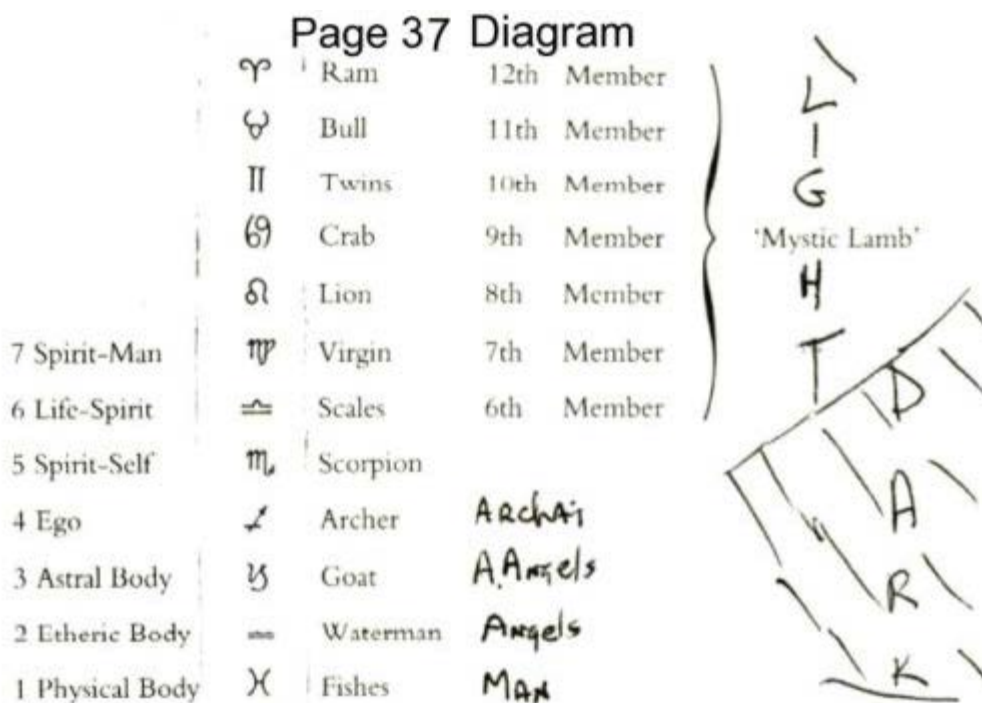 Page 37 Diagram
♈ Ram 12th Member
♉ Bull 11th Member
♊ Twins 10th Member
♋ Crab 9th Member
♌ Lion 8th Member
7 Spirit-Man ♍ Virgin 7th Member
6 Life-Spirit ♎ Scales 6th Member
5 Spirit-Self ♏ Scorpion
4 Ego ♐ Archer Archai
3 Astral Body ♑ Goat A.Angels
2 Etheric Body ♒ Waterman Angels
1 Physical Body ♓ Fishes MAN
'Mystic Lamb'
L
I
G
H
T
D
A
R
K